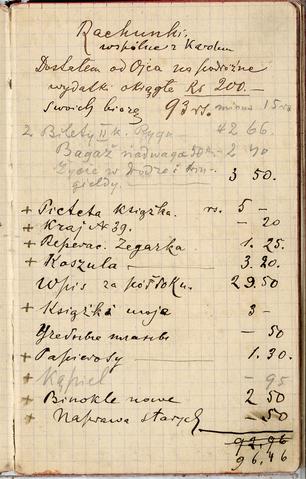 Rachunki,
wspólne z Karolem
Dostałem od Ojca na podróżne
wydatki okrągłe Rs 200.—
swoich biorę 93 rs. minus 15 rs
2 Bilety II k. Ryga — 42 66.
Bagaż nadwaga — 2 70
Życie w drodze i
3 50.
+ Picteta książka. rs. 5 —
+ Kraj N 39. — 20
+ Reperac. Zegarka 1. 25.
+ Koszula — 3. 20.
Wpis za półroku. 29.50
+ Książki moja 3 —
— 50
+ Papierosy — 1.30.
+ Kąpiel — 95
+ Binokle nowe 2 50
+ Naprawa starych — 50
92,96
96,46